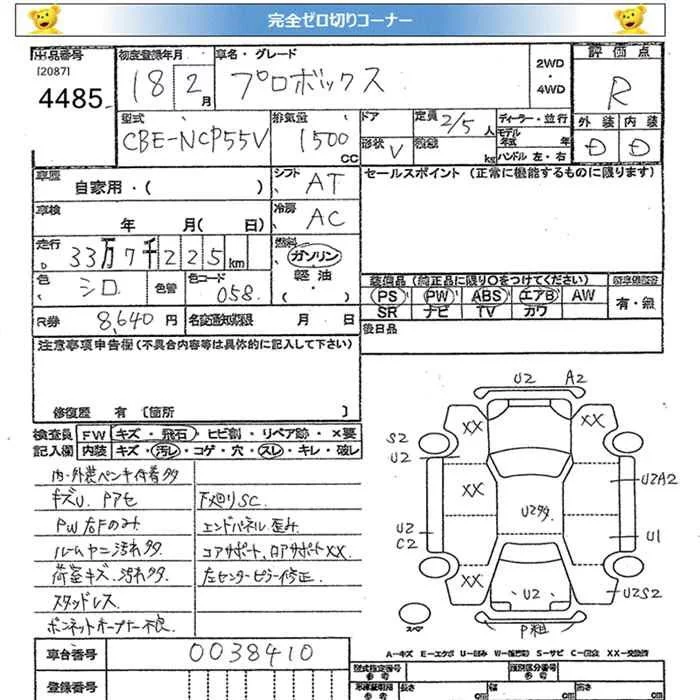 完全ゼロ切りコーナー
出品番号
[2087]
4485
初度登録年月
18 2月
車名・グレード
プロボックス
2WD
・
4WD
評価点
R
外装 内装
D D
型式
CBE-NCP55V
排気量
1500
CC
ドア
形状 V
定員 2/5 人
積載 kg
ディーラー・並行
モデル
年式 年
ハンドル 左・右
車歴
自家用・( )
シフト AT
車検
年 月( 日)
冷房 AC
走行
33万7千225km
燃料
ガソリン
軽油
・( )
色
シロ
色替
色コード
058
R券 8,640円
名変通知期限 月 日
セールスポイント(正常に機能するものに限ります)
装備品(純正品に限り○をつけてください)
PS PW ABS エアB AW
SR ナビ TV カワ
有・無
後日品
注意事項申告欄(不具合内容等は具体的に記入して下さい)
修復歴 有 [箇所 ]
検査員 FW キズ・飛石・ヒビ割・リペア跡・×要
記入欄 内装 キズ・汚レ・コゲ・穴・スレ・キレ・破レ
内・外装ペンキ付着多
キズU. Pアセ
PW右Fのみ
ルームヤニ汚れ多
荷室キズ.汚れ多.
スタッドレス
ボンネットオープナー不良.
下廻りSC.
エンドパネル歪み.
コアサポート、ロアサポートXX.
左センターピラー修正.
U2 A2
XX XX
S2
U2
U2A2
XX
U2多
U2
C2
U1
XX
U2
U2S2
スペア
P粗
A-キズ E-エクボ U-凹み W-補修跡 S-サビ C-腐食 XX-交換済
車台番号 0038410
登録番号
型式指定番号
類別区分番号
長さ cm
幅 cm
高さ cm